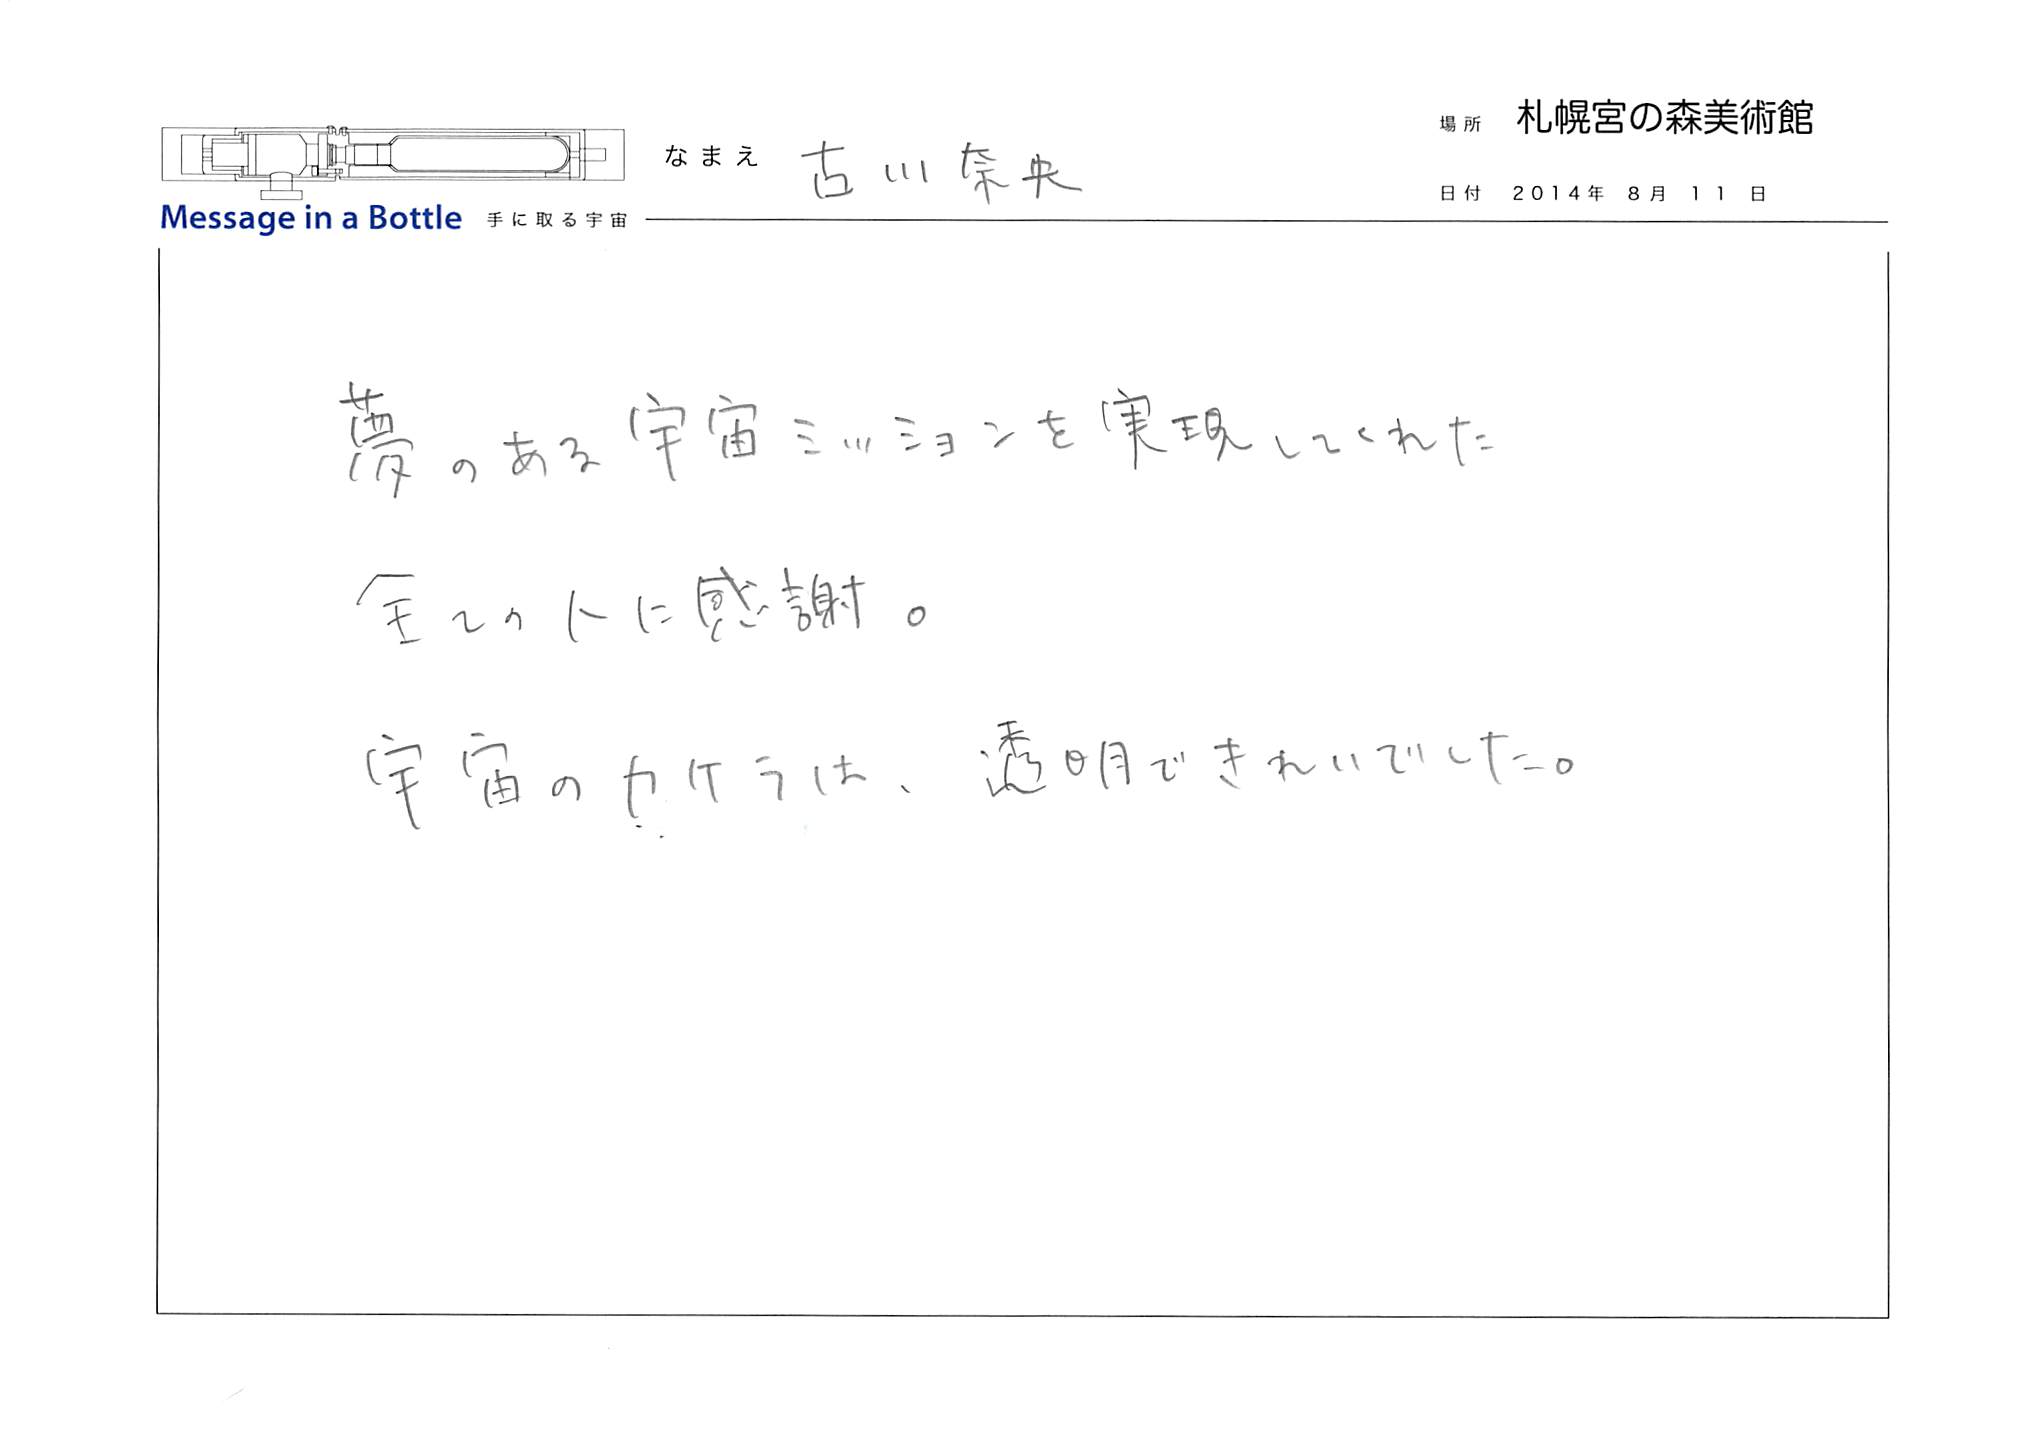 場所 札幌宮の森美術館
なまえ 古川奈央
日付 2014年 8月 11日
Message in a Bottle 手に取る宇宙
夢のある宇宙ミッションを実現してくれた
全ての人に感謝。
宇宙のカケラは、透明できれいでした。